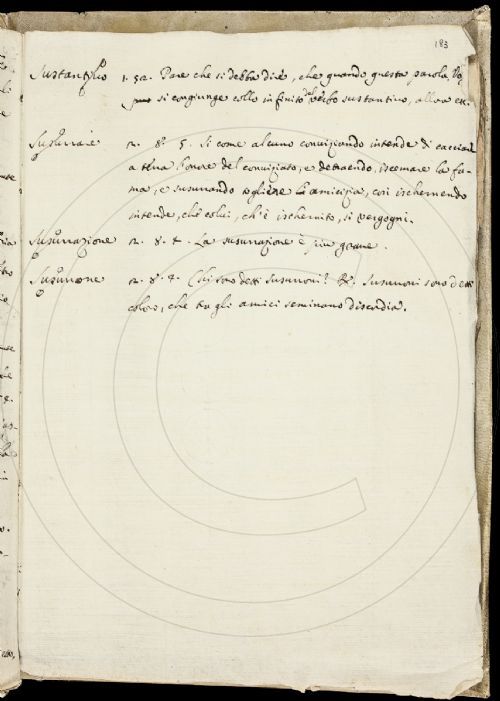 183
Sustantivo 1. 52. Pare che si debba dire, che quando questa parola
si congiunge collo infinito del verbo sustantivo, allora ec.
Susurrare 2. 8. 5. Si come alcuno conviziando intende di cacciare
a terra l'onore del conviziato, e detraendo, iscemare la fa-
ma, e susurrando togliere la amicizia, così ischernendo
intende, che colui, ch'è ischernito, si vergogni.
Susurrazione 2. 8. 4. La susurrazione è più grave.
Susurrone 2. 8. 4. Chi sono detti Susurroni? R. Susurroni sono detti
coloro, che tra gli amici seminano discordia.